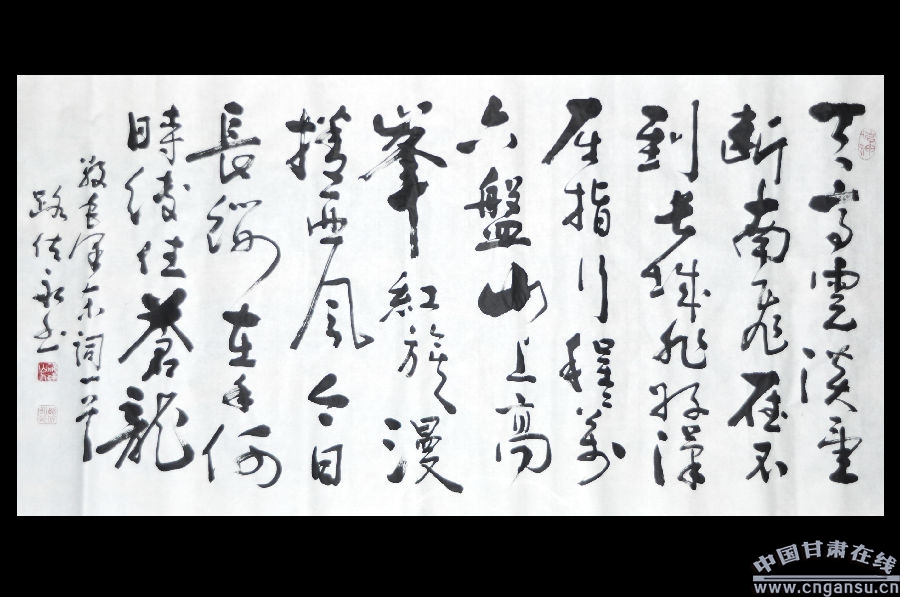 天高雲淡望
斷南飛雁不
到长城非好漢
屈指行程二萬
六盤山上高
峯紅旗漫
捲西風今日
長纓在手何
時縛住蒼龍
敬毛泽东詞一首
路永书
中国甘肃在线
www.cngansu.cn